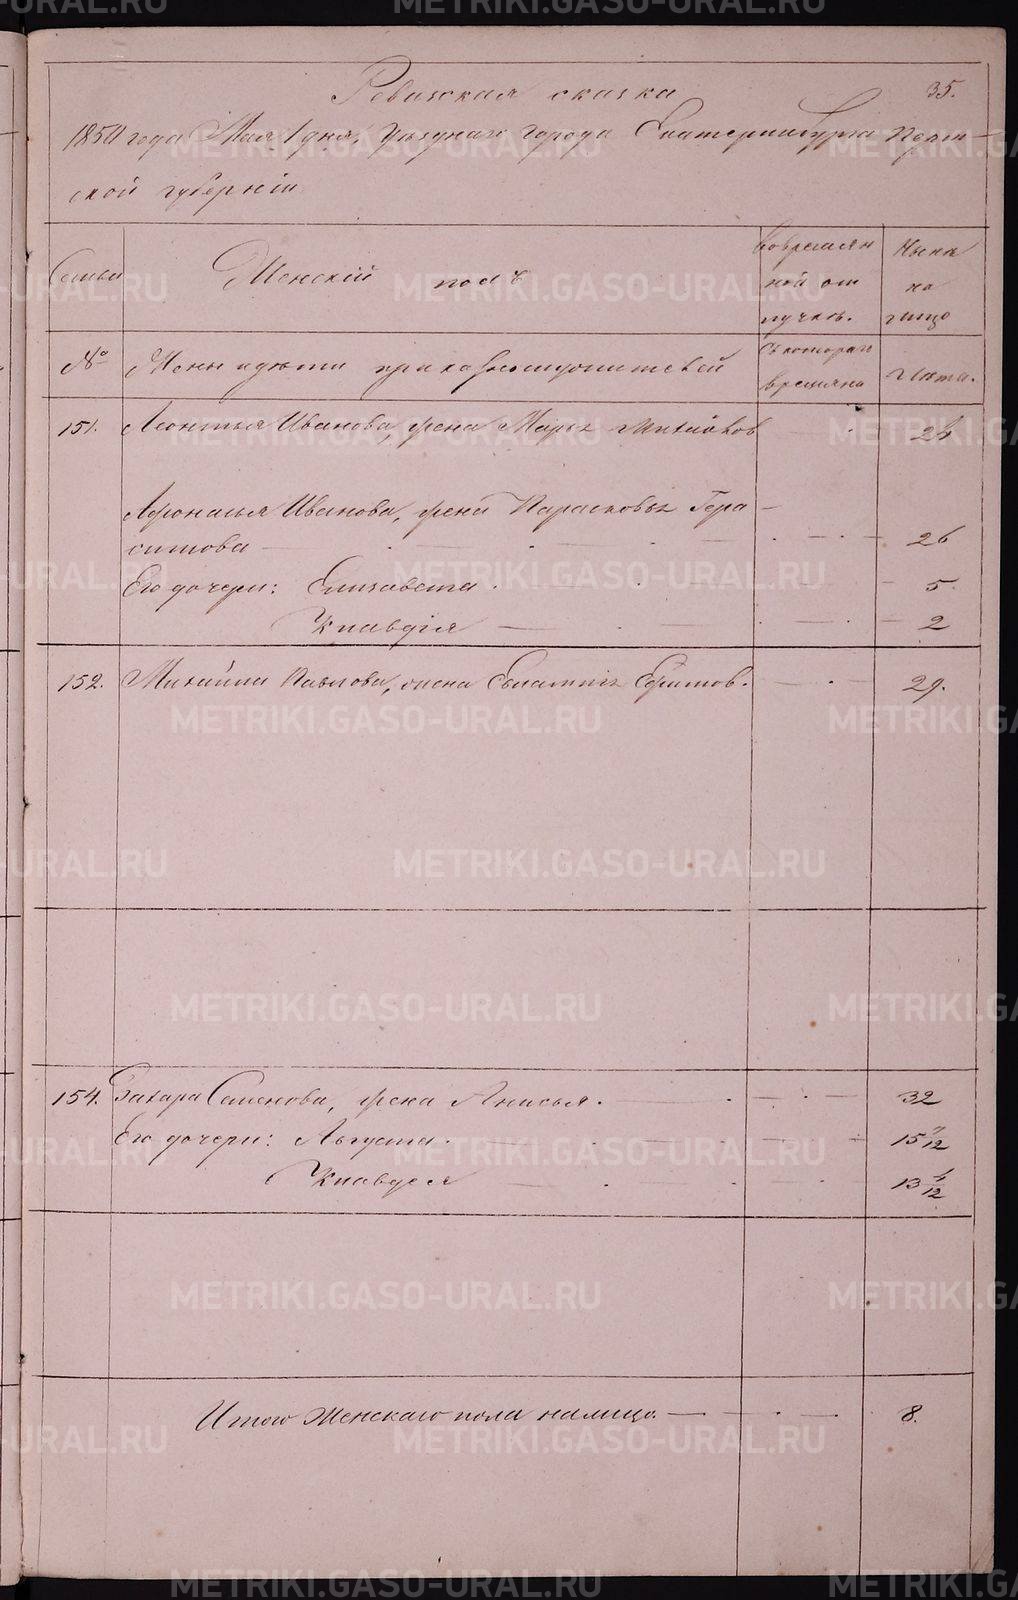 35.
Ревизская сказка
185 года Мая 1 дня, уезднаго города Екатеринбурга Перм-
ской губерніи
Семьи
Женскій полъ
Во времян
ной от
лучкѣ.
Ныне
на
лицо
№
Жены и дѣти
Съ котораго
времяни
Лѣта.
151. Леонтья Иванова, жена Марья Михайлов 26
Афонасья Иванова, жена Парасковья Гера-
симова 26
Его дочери: Елизавета. 5.
Клавдія 2
152. Михайли Павлова, жена Евлампія Ефимов. 29.
154. Захара Семенова, жена Анисья. 32
Его дочери: Августа. 15 7/12
Клавдея 13 4/12
Итого женскаго пола налицо. 8.
METRIKI.GASO-URAL.RU